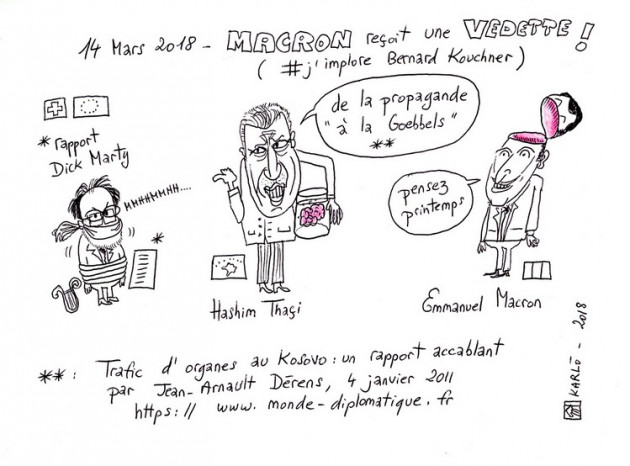 14 Mars 2018 - MACRON reçoit une VEDETTE !
( #j'implore Bernard Kouchner )
* rapport
Dick Marty
HHHHHHHH....
*
de la propagande
"à la Goebbels"
**
pensez
printemps
Hashim Thaçi
Emmanuel Macron
** : Trafic d'organes au Kosovo : un rapport accablant
par Jean-Arnault Dérens, 4 janvier 2011
https:// www. monde-diplomatique. fr
KARLÖ - 2018